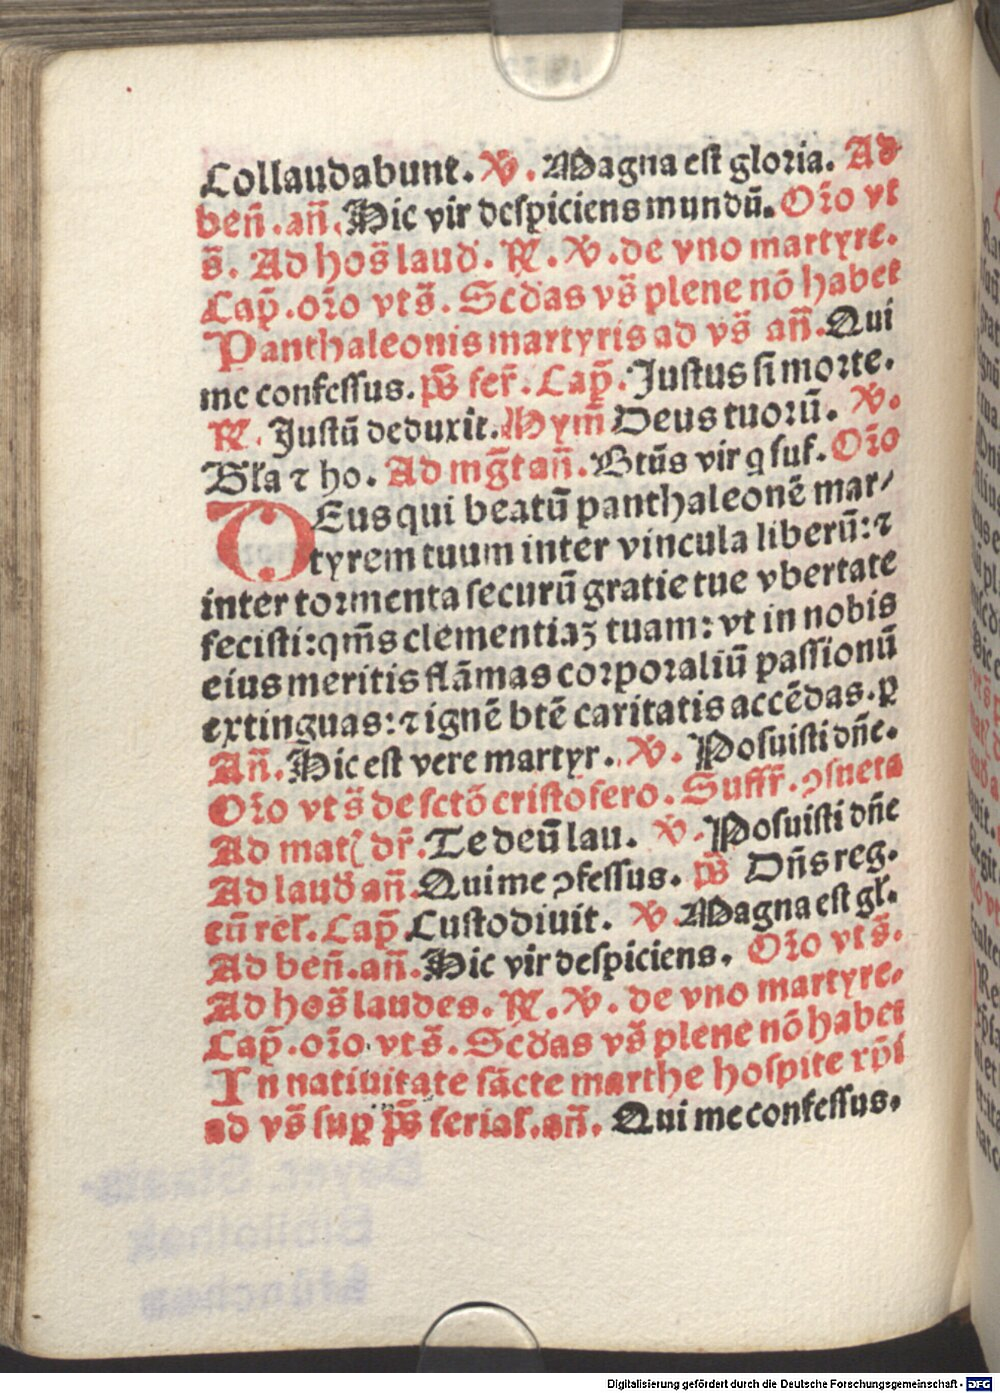 Collaudabunt. ℣. Magna est gloria. Ad
ben̄. an̄. Hic vir despiciens mundū. Or̄o vt
s̄. Ad hos̄ laud. ℟. ℣. de vno martyre.
Cap̄. or̄o vt s̄. Scd̄as vs̄ plene nō habet
Panthaleonis martyris ad vs̄ an̄. Qui
me confessus. ps̄ fer̄. Cap̄. Justus si morte.
℟. Justū deduxit. Hym̄ Deus tuorū. ℣.
Gl̄a ⁊ ho. Ad mḡt an̄. Bt̄us vir q suf. Or̄o
DEus qui beatū panthaleonē mar/
tyrem tuum inter vincula liberū: ⁊
inter tormenta securū gratie tue vbertate
fecisti: qm̄s clementiaꝫ tuam: vt in nobis
eius meritis flāmas corporaliū passionū
extinguas: ⁊ ignē btē caritatis accēdas. ꝑ
An̄. Hic est vere martyr. ℣. Posuisti dn̄e.
Or̄o vt s̄ de sctō cristofero. Suffr̄. ꝯsueta
Ad mat̄ dr̄. Te deū lau. ℣. Posuisti dn̄e
Ad laud an̄ Qui me ꝯfessus. ps̄ Dn̄s reg.
cū rel̄. Cap̄ Custodiuit. ℣. Magna est gl̄.
Ad ben̄. an̄. Hic vir despiciens. Or̄o vt s̄.
Ad hos̄ laudes. ℟. ℣. de vno martyre.
Cap̄. or̄o vt s̄. Scd̄as vs̄ plene nō habet
In natiuitate sācte marthe hospite xp̄i
ad vs̄ suꝑ ps̄ ferial. an̄. Qui me confessus.
Digitalisierung gefördert durch die Deutsche Forschungsgemeinschaft - DFG